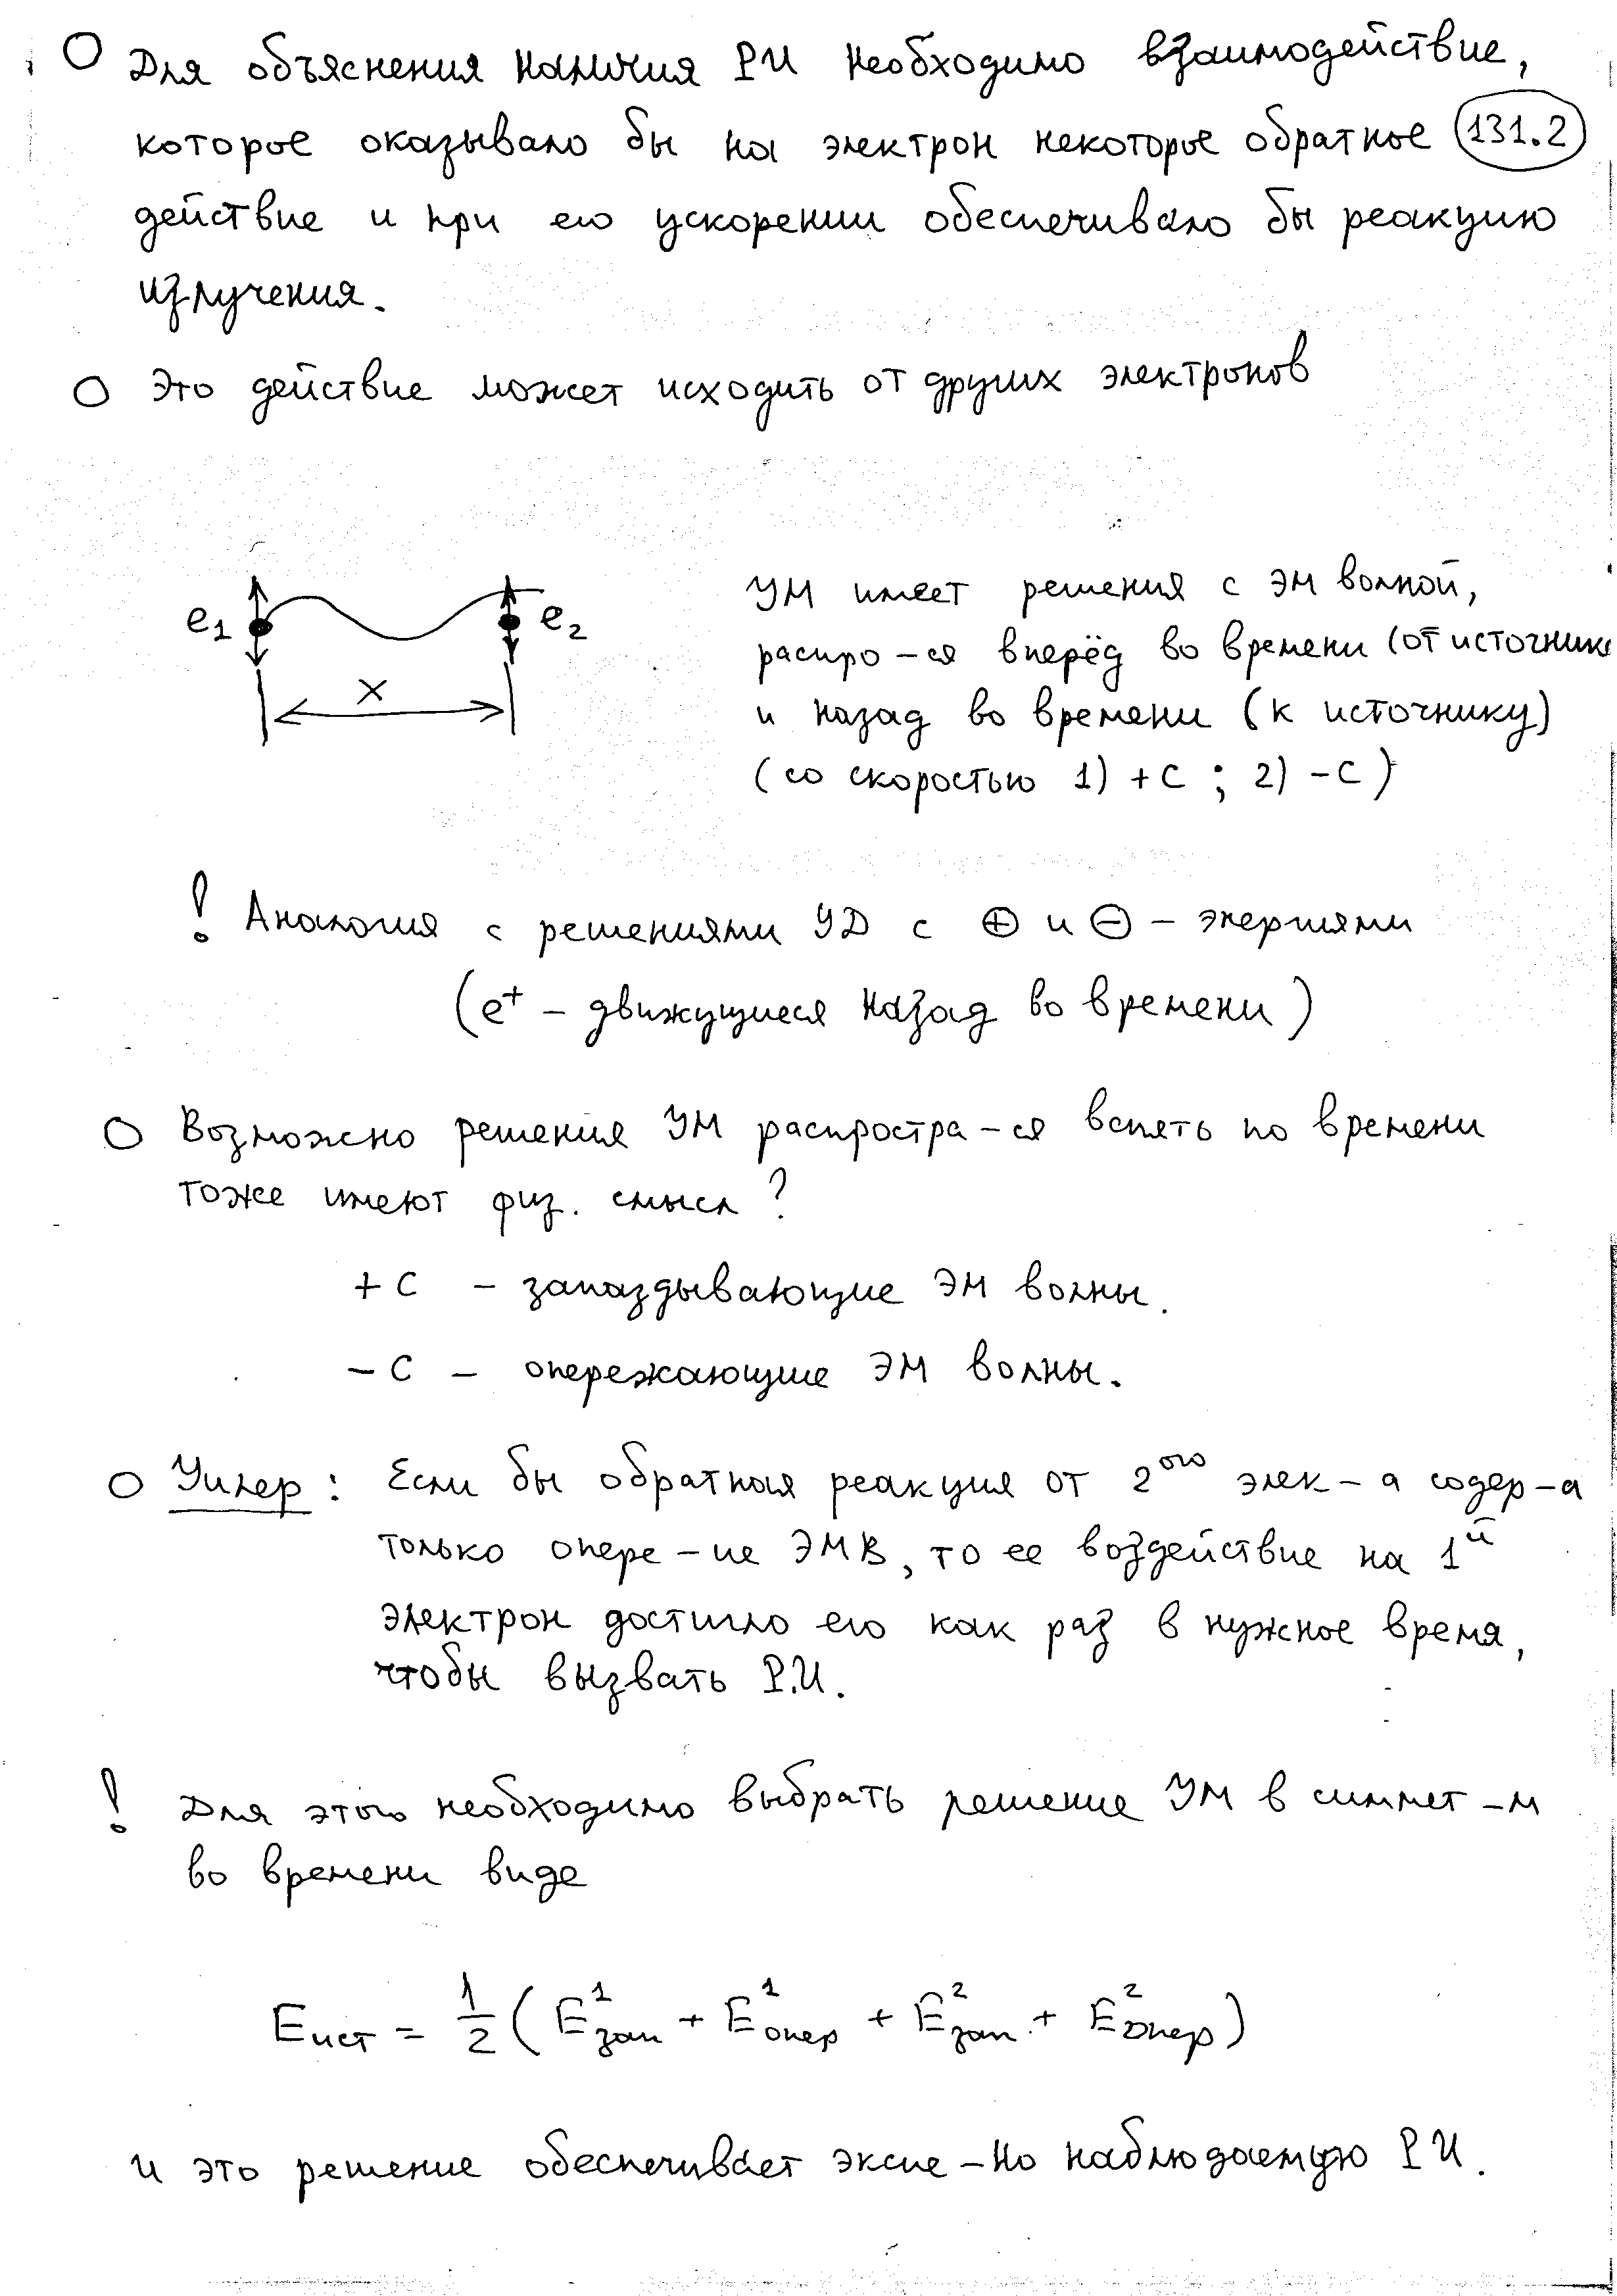 Для объяснения наличия РИ необходимо взаимодействие,
которое оказывало бы на электрон некоторое обратное 131.2
действие и при его ускорении обеспечивало бы реакцию
излучения.
Это действие может исходить от других электронов
e1 e2
x
УМ имеет решения с ЭМ волной,
распро-ся вперёд во времени (от источник
и назад во времени (к источнику)
(со скоростью 1) +c ; 2) -c)
! Аналогия с решениями УД с ⊕ и ⊖ - энергиями
(e⁺ - движущиеся назад во времени)
Возможно решения УМ распростра-ся вспять по времени
тоже имеют физ. смысл?
+c - запаздывающие ЭМ волны.
-c - опережающие ЭМ волны.
Уилер: Если бы обратная реакция от 2ого элек-а содер-а
только опере-ие ЭМВ, то ее воздействие на 1й
электрон достигло его как раз в нужное время,
чтобы вызвать Р.И.
! Для этого необходимо выбрать решение УМ в симмет-м
во времени виде
Eист = 1/2 (E¹зап + E¹опер + E²зап. + E²опер)
и это решение обеспечивает экспе-но наблюдаемую РИ.